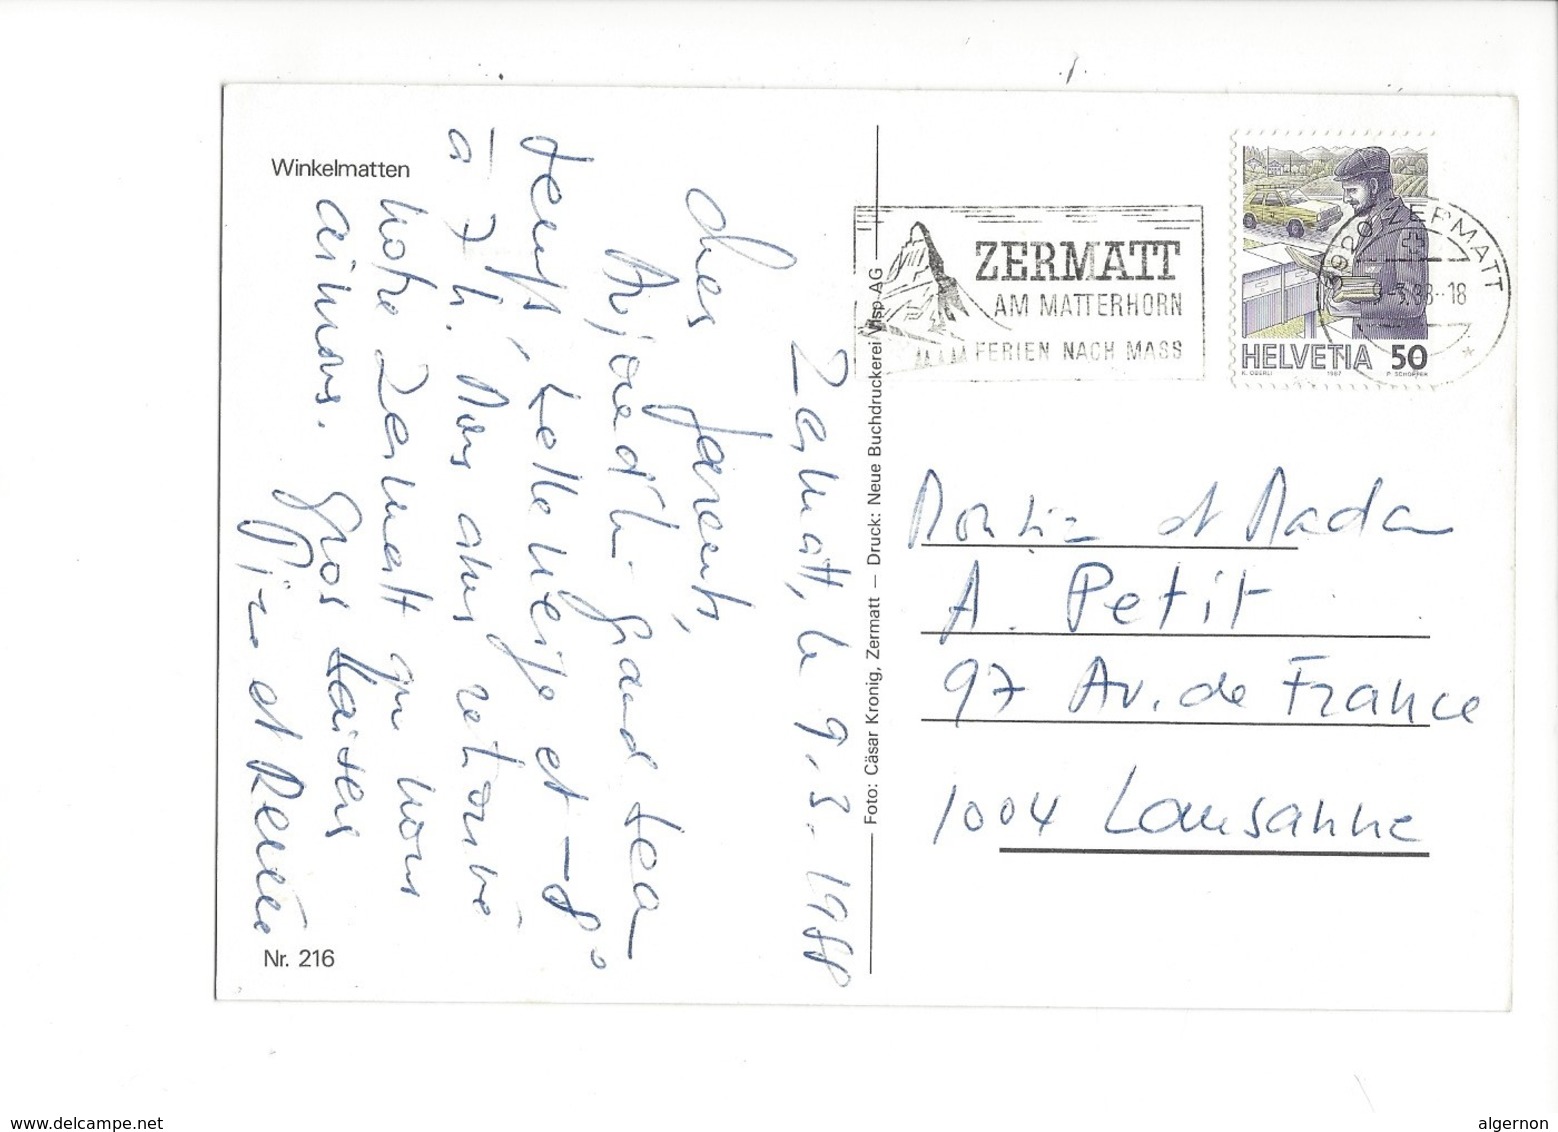 Winkelmatten
Zermatt, le 9.3.1988
Chers Parents,
Aujourd'hui grand beau
temps, belle neige et -8°
à 7 h. Nous avons retrouvé
notre Zermatt que nous
aimons. Gros baisers
et Renée
Nr. 216
Foto: Cäsar Kronig, Zermatt — Druck: Neue Buchdruckerei Visp AG
ZERMATT
AM MATTERHORN
FERIEN NACH MASS
3920 ZERMATT
-3.88--18
HELVETIA 50
K. OBERLI 1987 P. SCHOPFER
A. Petit
97 Av. de France
1004 Lausanne
www.delcampe.net
algernon